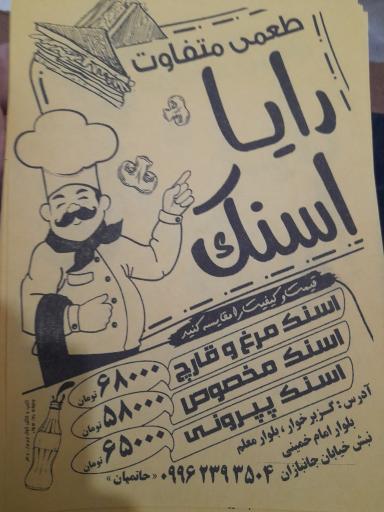 طعمی متفاوت
رایا
اسنک
قیمت و کیفیت را مقایسه کنید
اسنک مرغ و قارچ ۶۸۰۰۰ تومان
اسنک مخصوص ۵۸۰۰۰ تومان
اسنک پپرونی ۶۵۰۰۰ تومان
آدرس: گزبرخوار، بلوار معلم
بلوار امام خمینی
نبش خیابان جانبازان
۰۹۹۶۲۳۹۳۵۰۴ «حاتمیان»